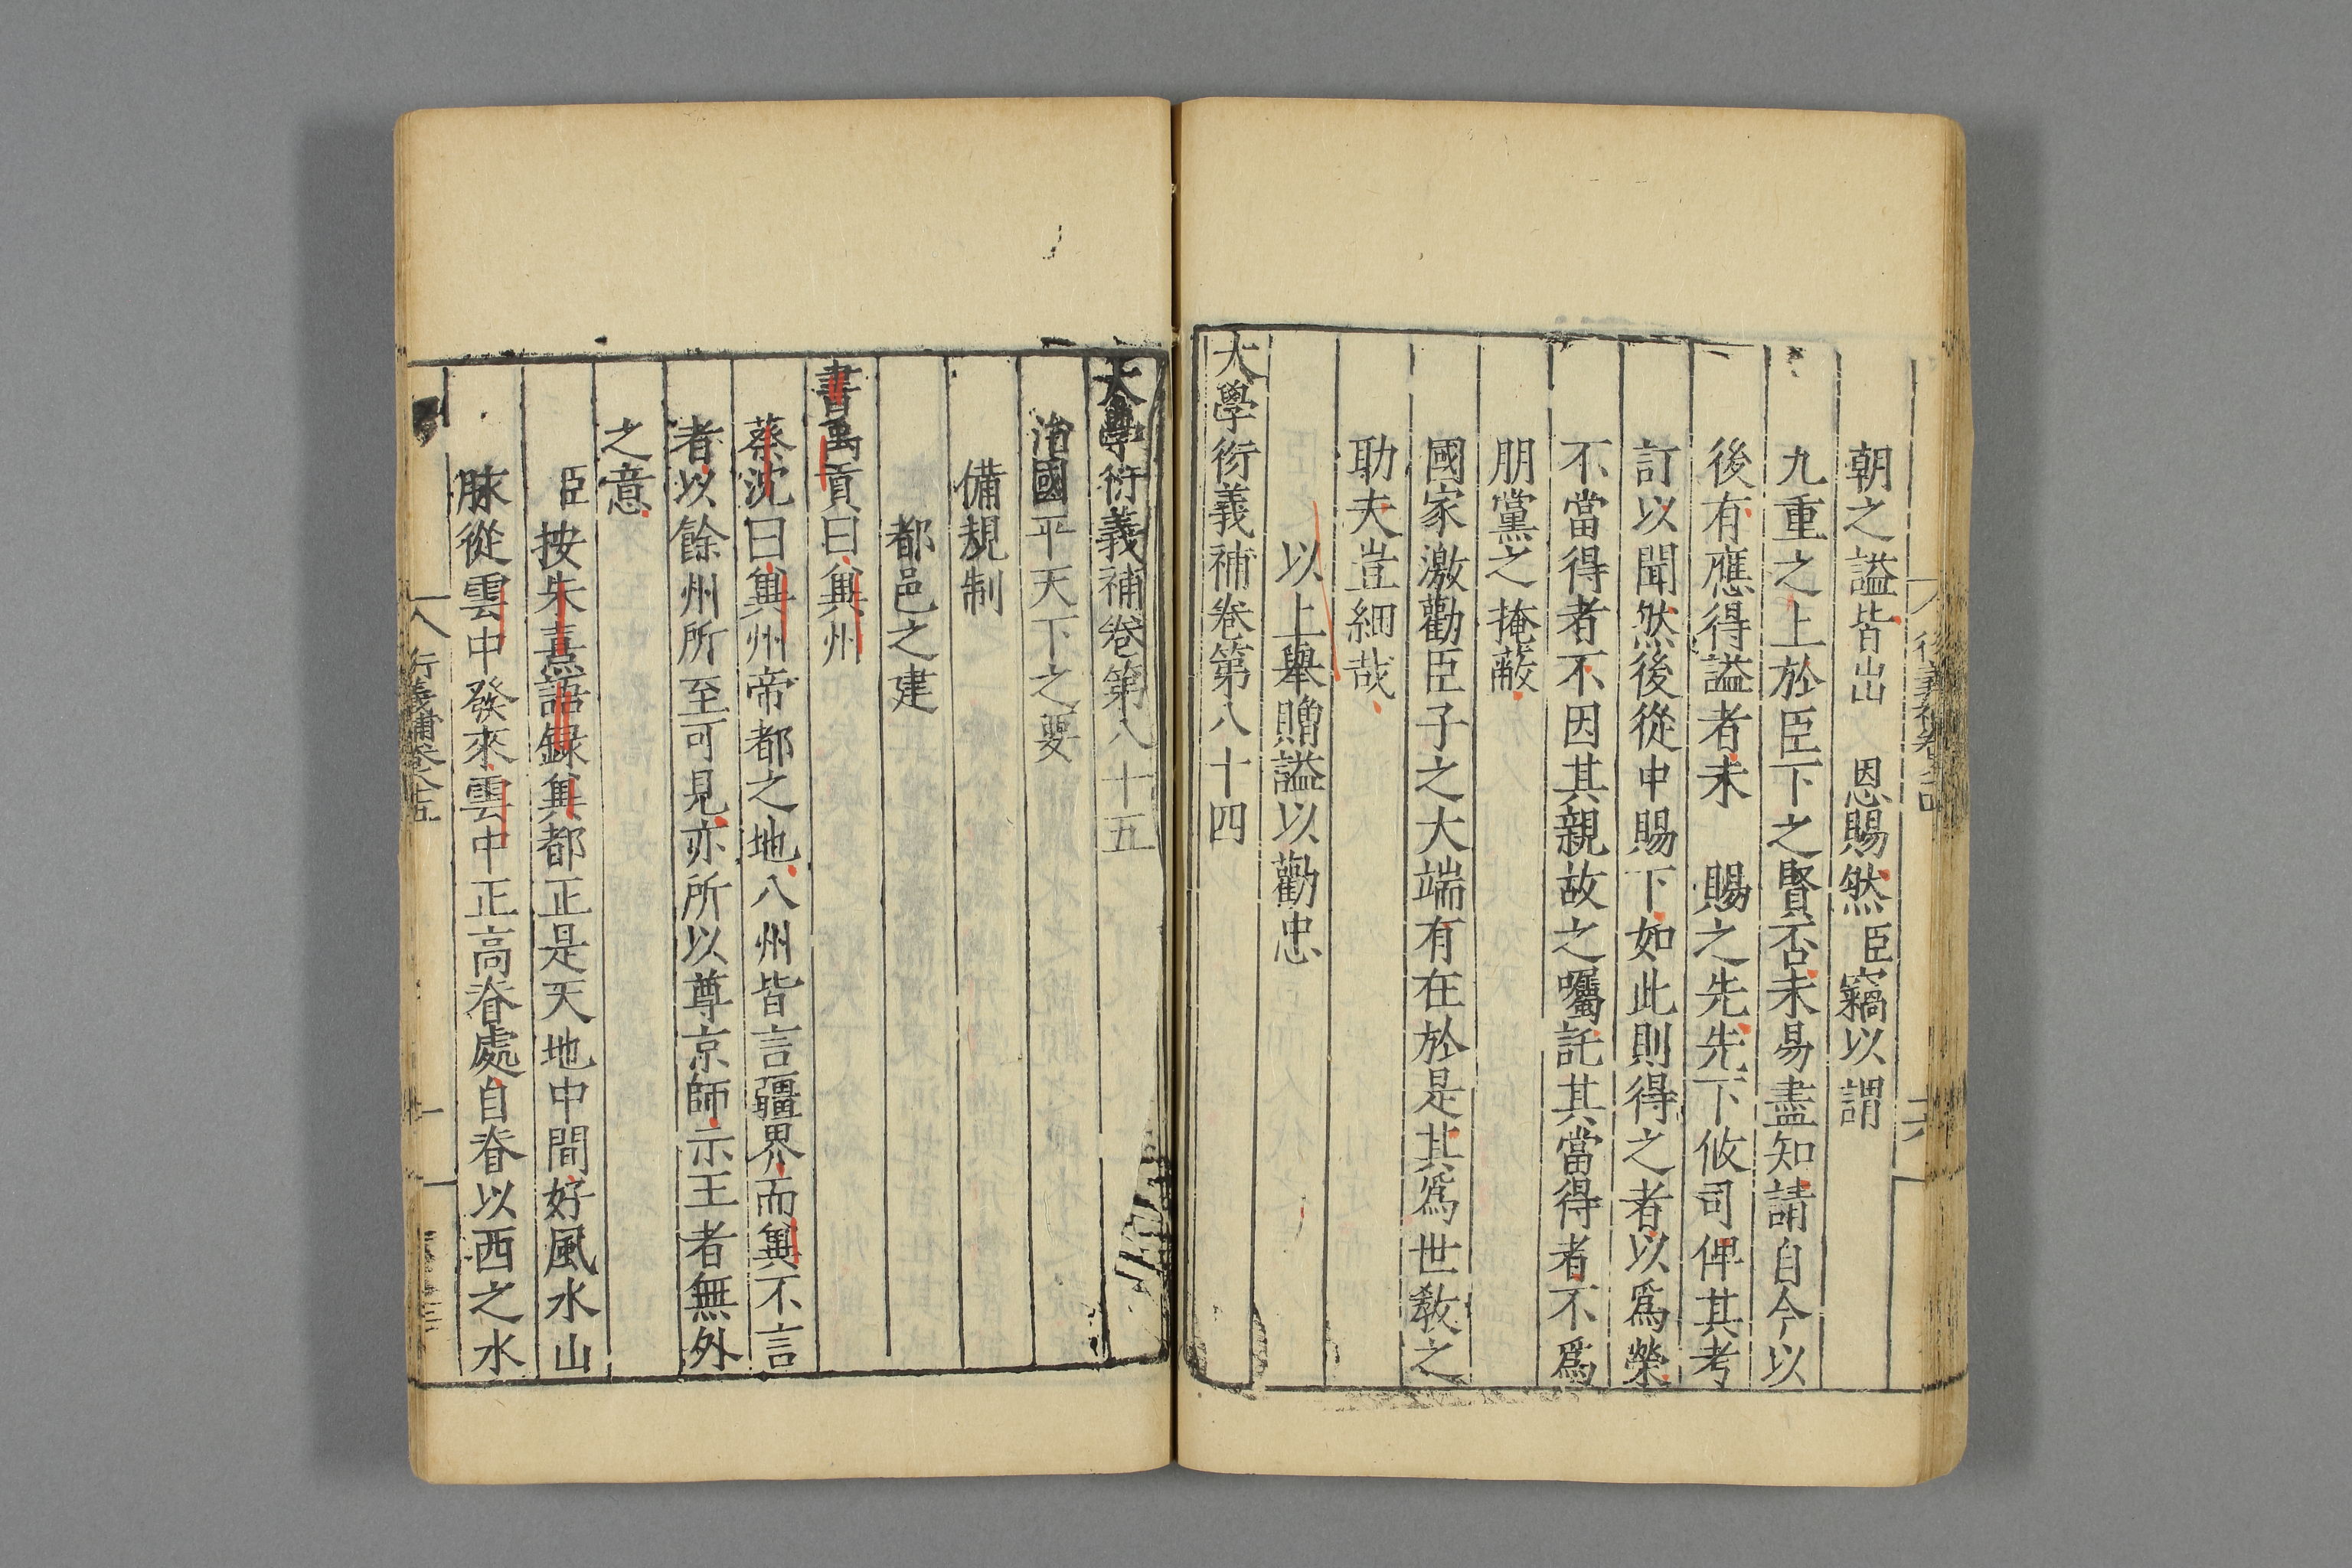 朝之諡皆出　恩賜然臣竊以謂
九重之上於臣下之賢否未易盡知請自今以
後有應得諡者未　賜之先先下攸司俾其考
訂以聞然後從中賜下如此則得之者以爲榮
不當得者不因其親故之囑託其當得者不爲
朋黨之掩蔽
國家激勸臣子之大端有在於是其爲世敎之
助夫豈細哉
以上舉贈諡以勸忠
大學衍義補卷第八十四
大學衍義補卷第八十五
治國平天下之要
備規制
都邑之建
書禹貢曰兾州
蔡沈曰兾州帝都之地八州皆言疆界而兾不言
者以餘州所至可見亦所以尊京師示王者無外
之意
臣按朱熹語録兾都正是天地中間好風水山
脉從雲中發來雲中正高脊處自脊以西之水